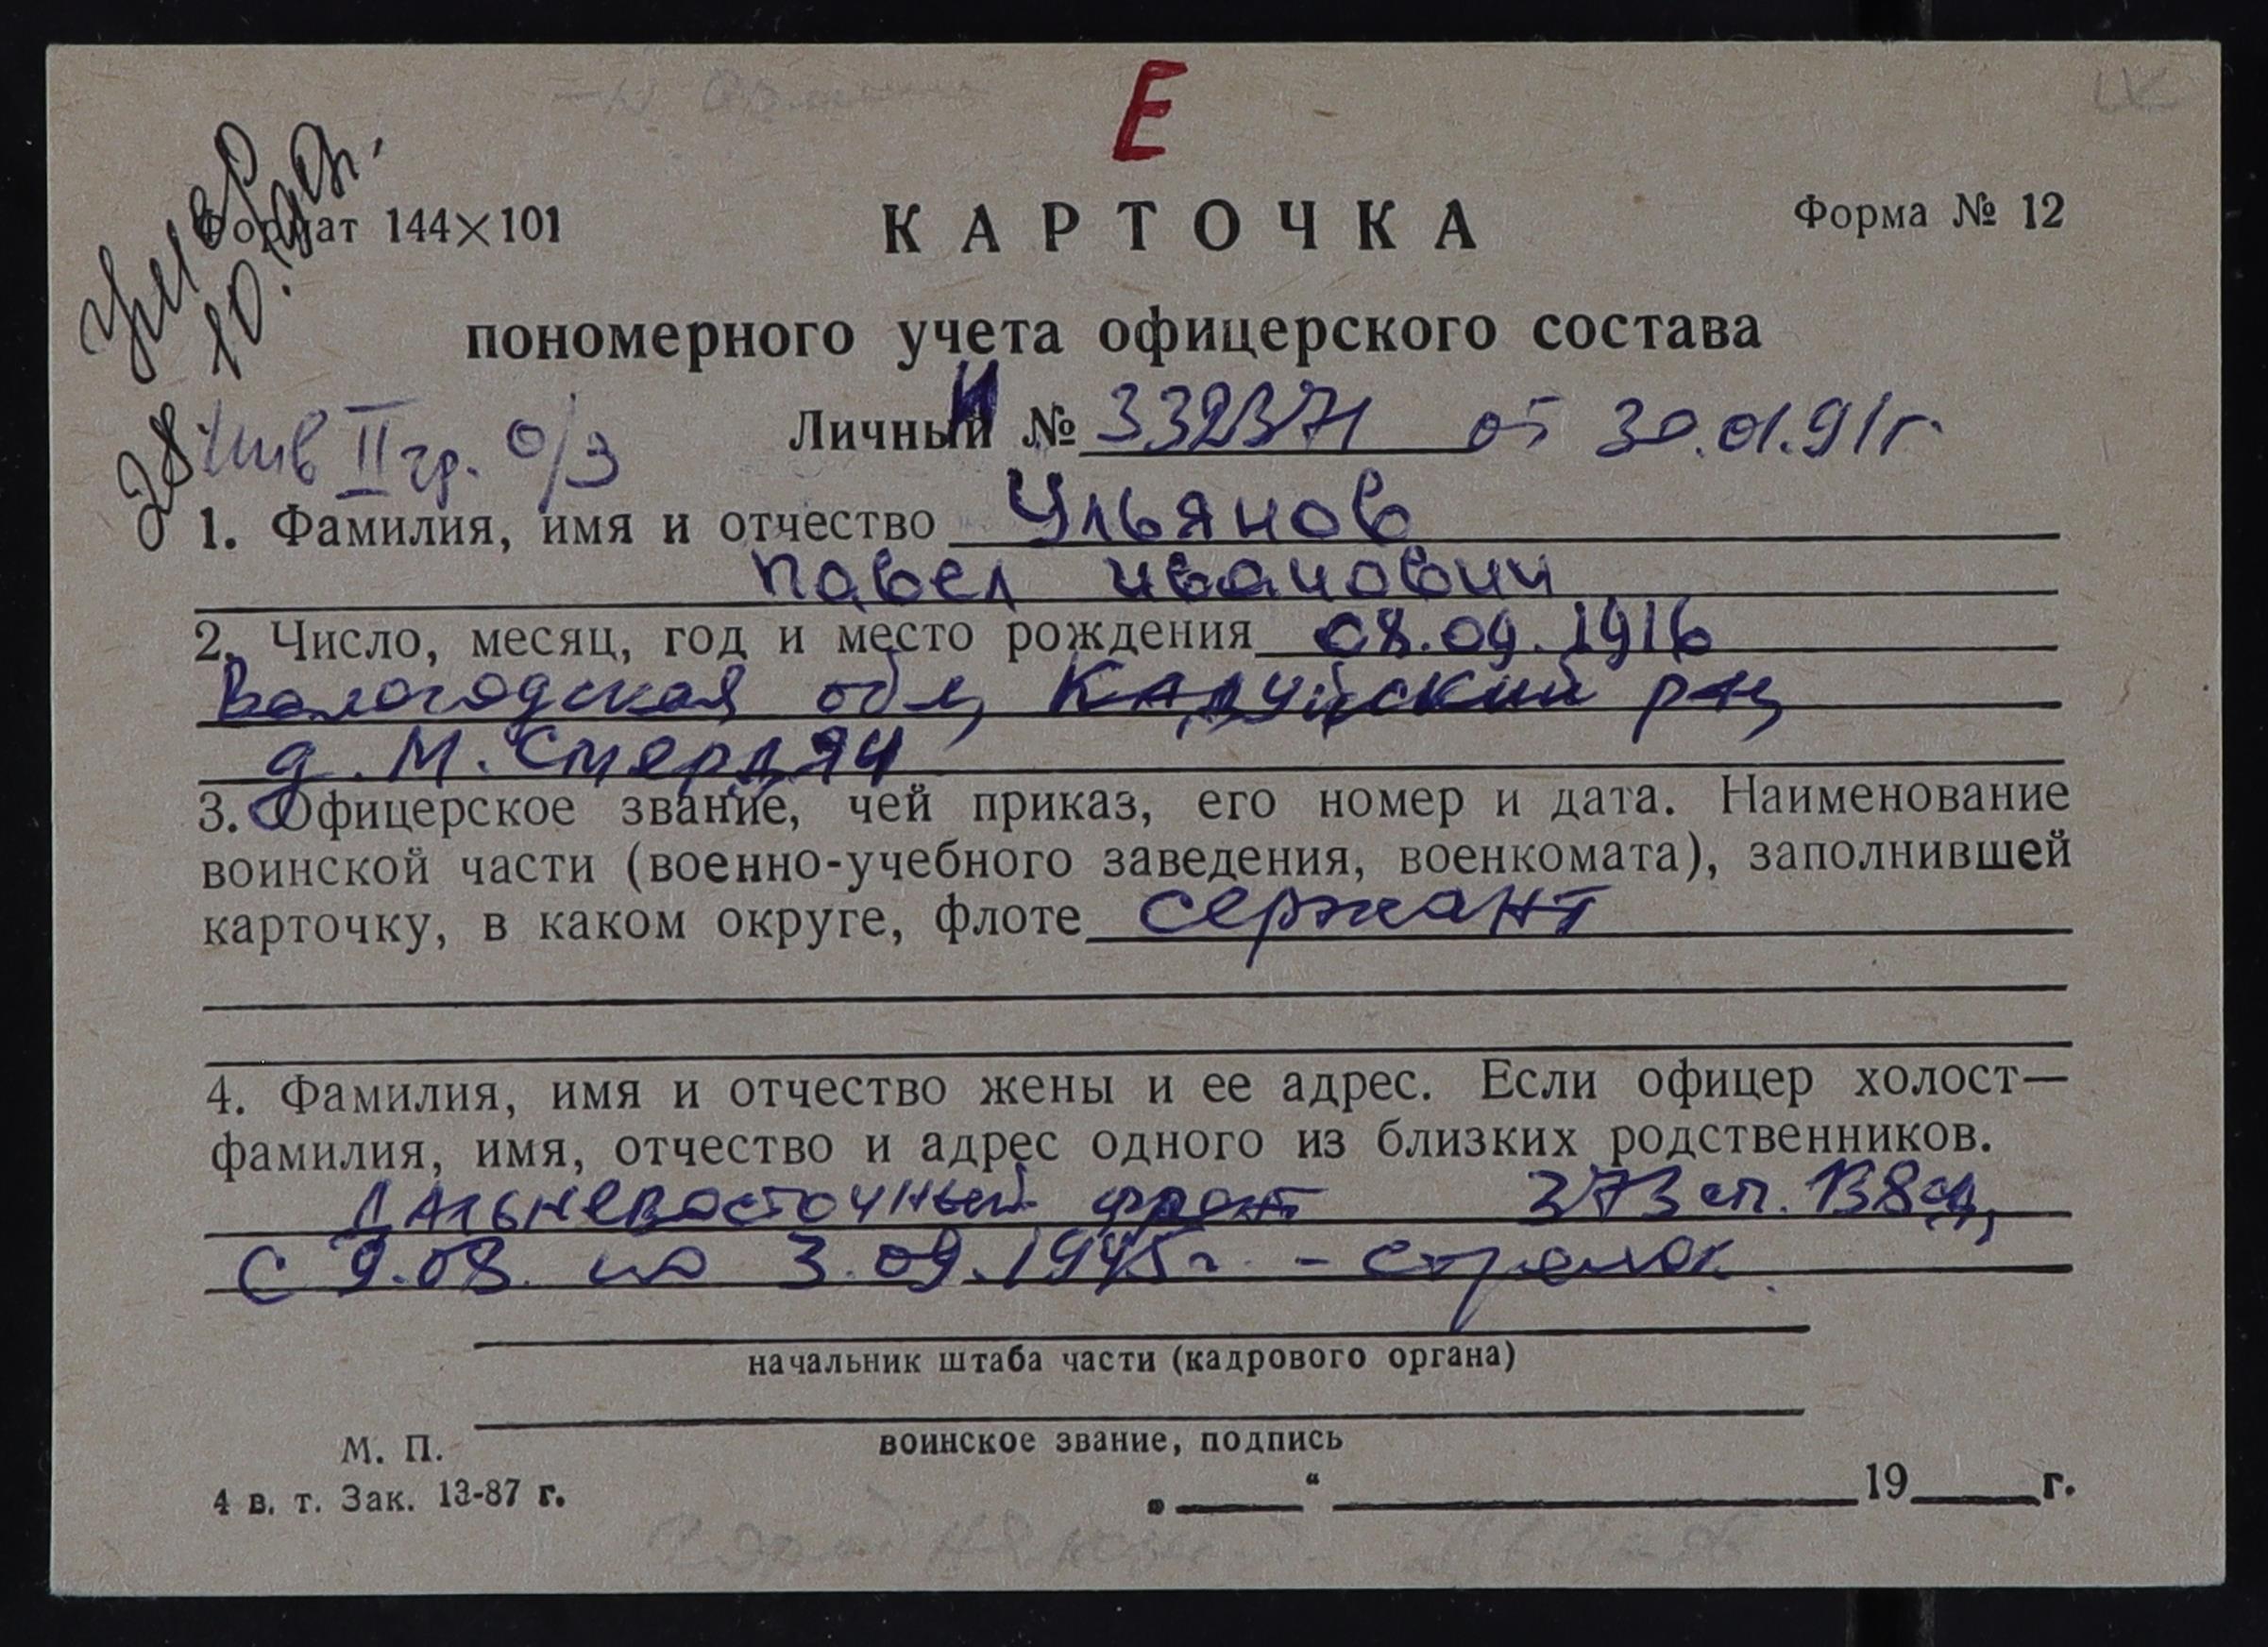 Е
Умер
Формат 144×101
КАРТОЧКА
Форма № 12
пономерного учета офицерского состава
инв II гр. о/з
Личный И № 332371 от 30.01.91г.
28
1. Фамилия, имя и отчество Ульянов
Павел Иванович
2. Число, месяц, год и место рождения 08.09.1916
Вологодская обл, Кадуйский р-н,
д. М. Смердяч
3. Офицерское звание, чей приказ, его номер и дата. Наименование
воинской части (военно-учебного заведения, военкомата), заполнившей
карточку, в каком округе, флоте сержант
4. Фамилия, имя и отчество жены и ее адрес. Если офицер холост—
фамилия, имя, отчество и адрес одного из близких родственников.
Дальневосточный фронт 373 сп. 138 сд,
с 9.08. по 3.09.1945г. - стрелок
начальник штаба части (кадрового органа)
воинское звание, подпись
М. П.
4 в. т. Зак. 13-87 г.
„ “ 19 г.